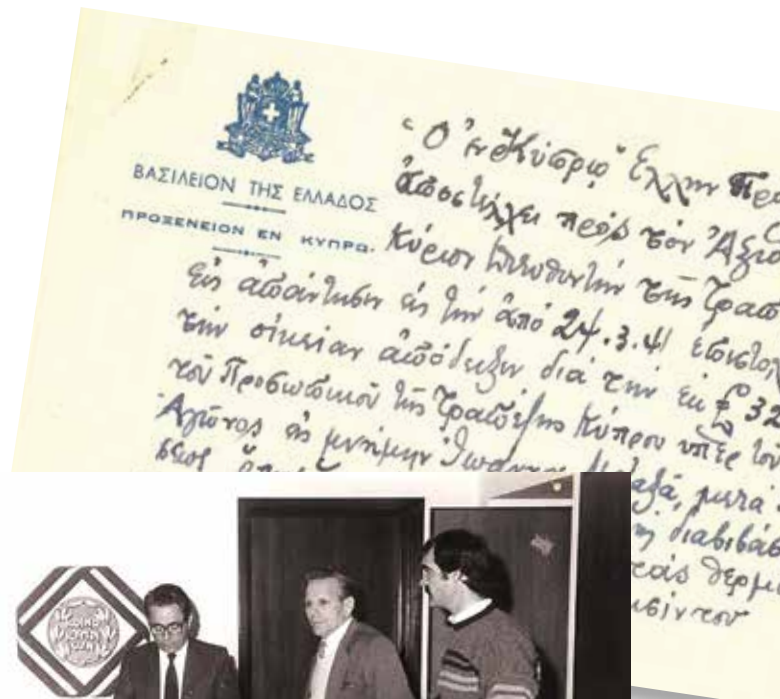 ΒΑΣΙΛΕΙΟΝ ΤΗΣ ΕΛΛΑΔΟΣ
ΠΡΟΞΕΝΕΙΟΝ ΕΝ ΚΥΠΡΩ.
Ὁ ἐν Κύπρῳ Ἕλλην Πρ
ἀποστέλλει πρὸς τὸν Ἀξιό
Κύριον Διευθυντὴν τῆς Τραπ
εἰς ἀπάντησιν εἰς τὴν ἀπὸ 24.3.41 ἐπιστολ
τὴν οἰκείαν ἀπόδειξιν διὰ τὴν ἐκ £ 32
τοῦ Προσωπικοῦ τῆς Τραπέζης Κύπρου ὑπὲρ τοῦ
Ἀγῶνος εἰς μνήμην Ἰωάννου μετὰ
διαβιβάσ
θερμ
του
ΚΟΙΝΟΝ
ΚΥΠΡΙ
ΩΝ